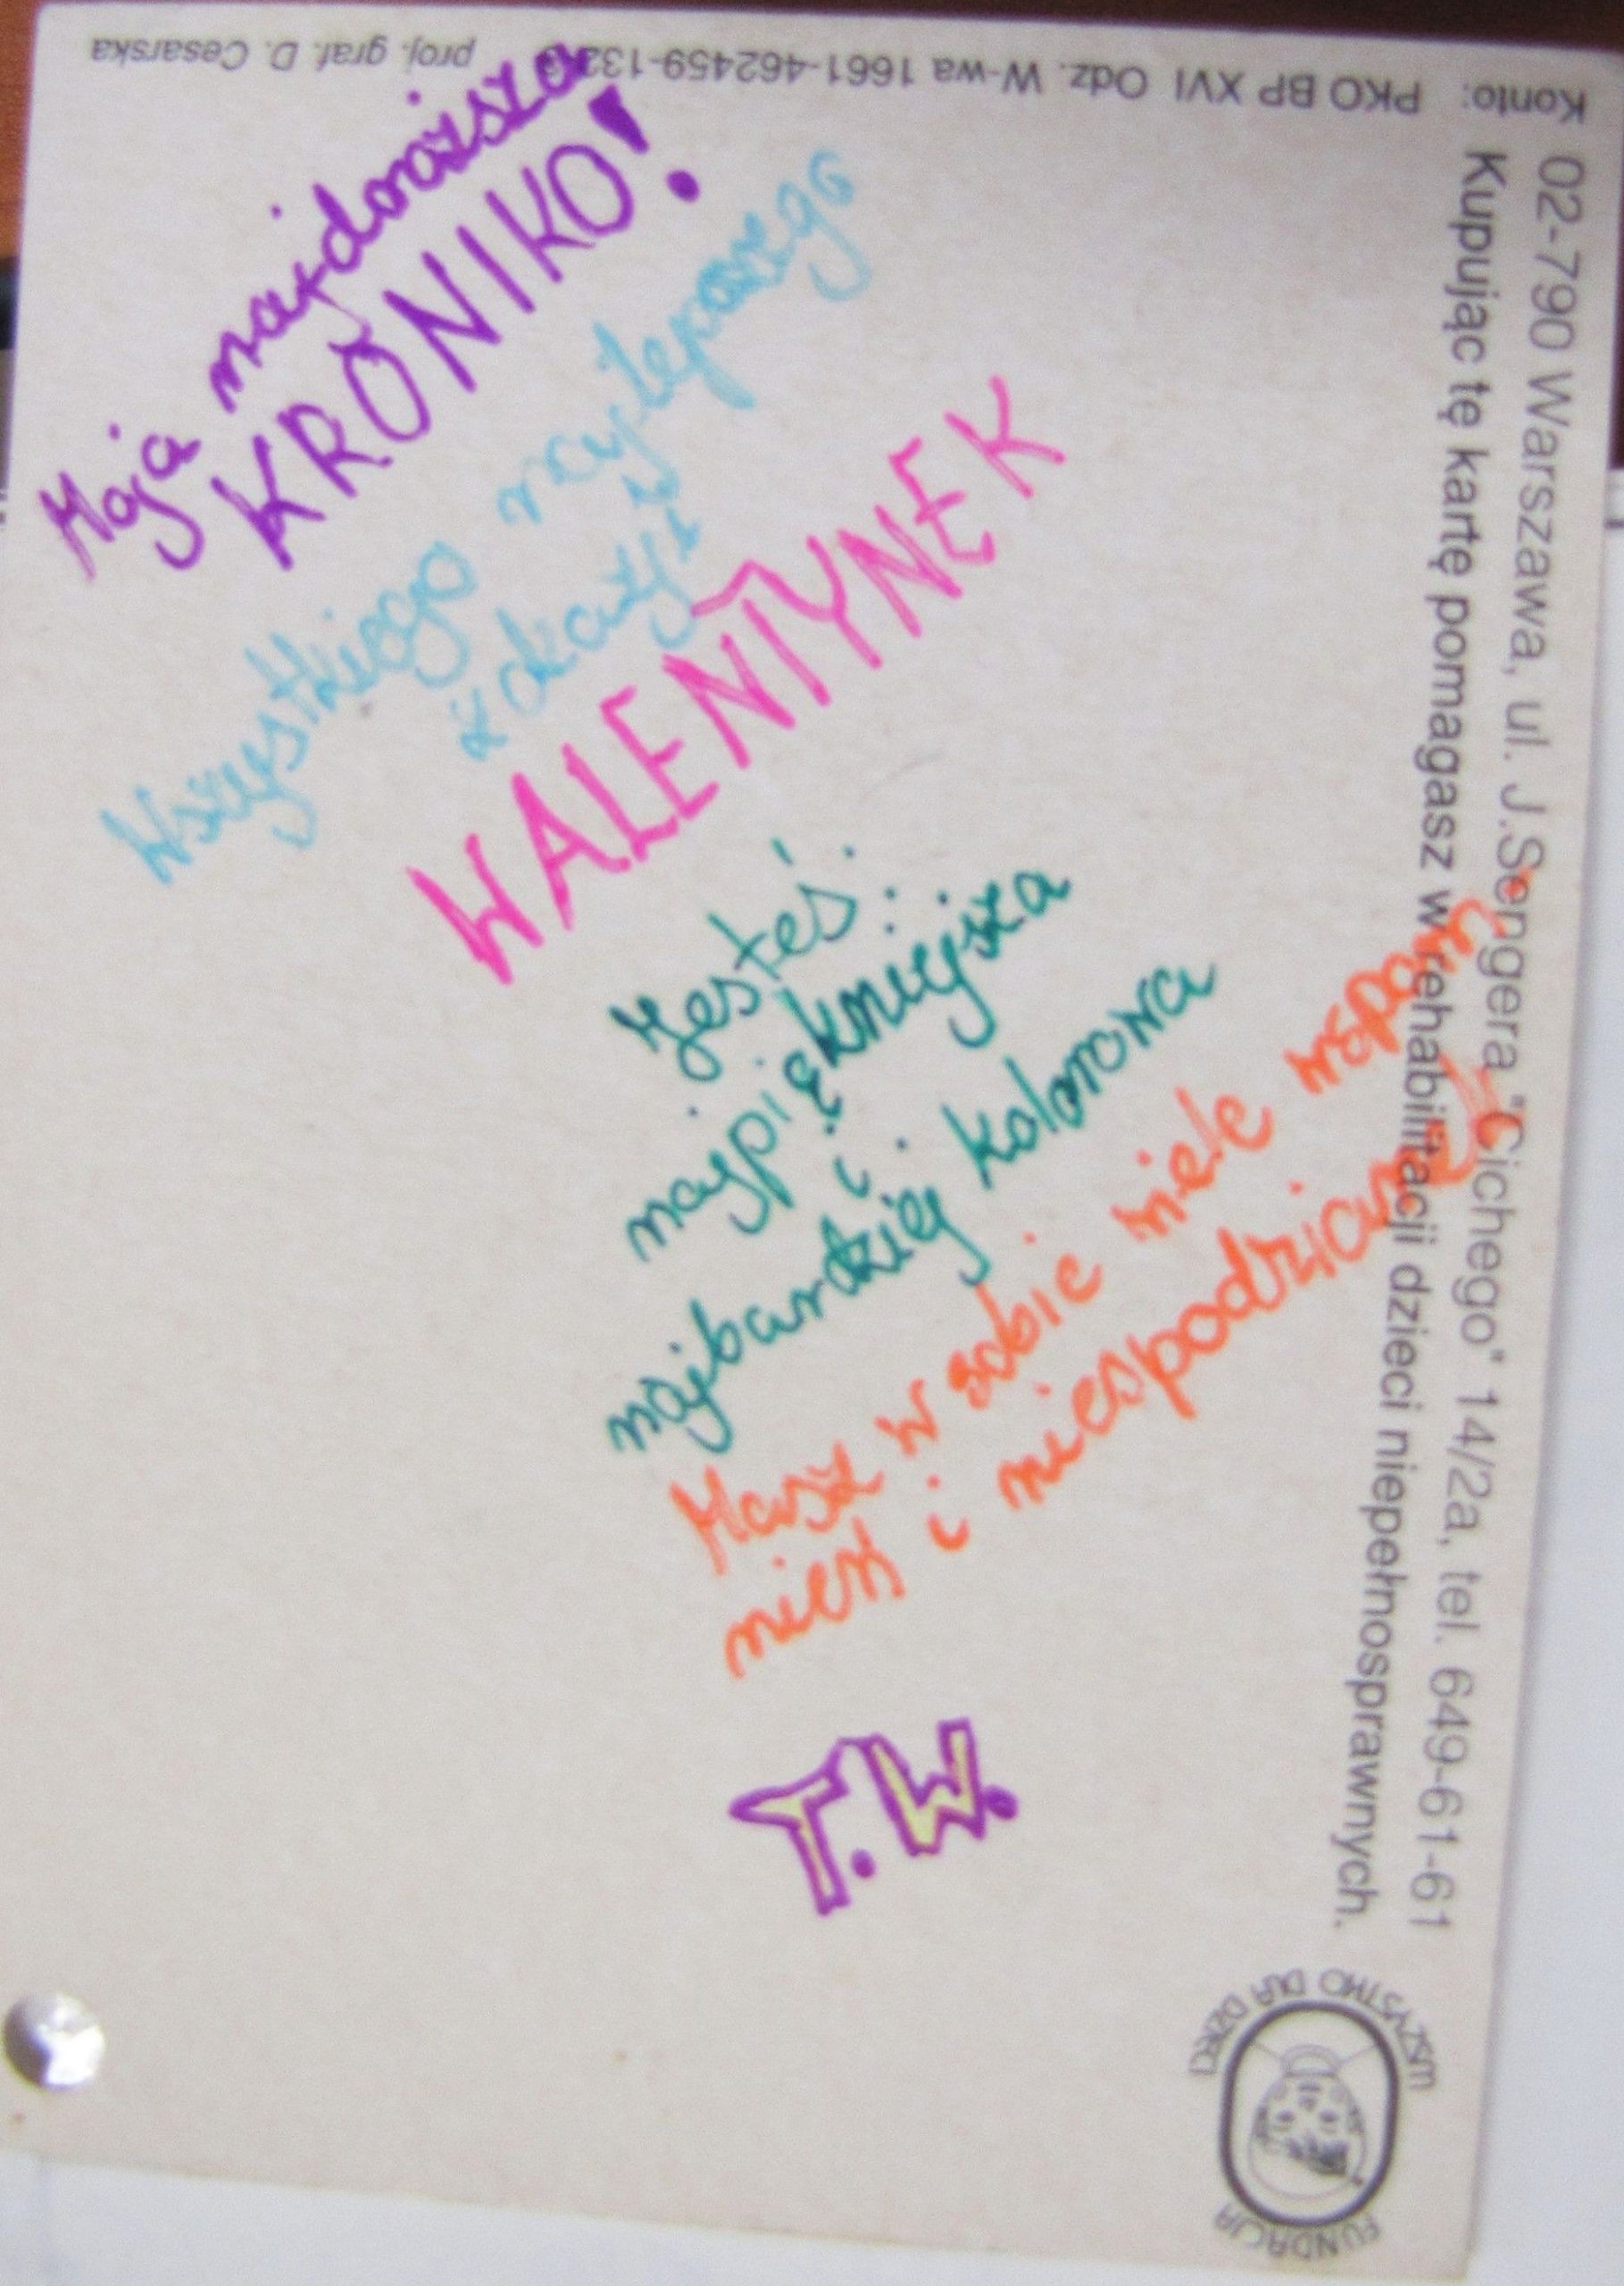 Moja najdroższa
KRONIKO!
Wszystkiego najlepszego
z okazji
WALENTYNEK
Jesteś:
najpiękniejsza
i
najbardziej kolorowa
Masz w sobie wiele wspom
nień i niespodzianek
T.W.
FUNDACJA
WSZYSTKO DLA DZIECI
02-790 Warszawa, ul. J.Sengera "Cichego" 14/2a, tel. 649-61-61
Kupując tę kartę pomagasz w rehabilitacji dzieci niepełnosprawnych.
Konto: PKO BP XVI Odz. W-wa 1661-462459-132
proj. graf. D. Cesarska